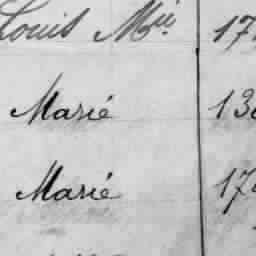 Louis Mie 17
Marié 13
Marié 17